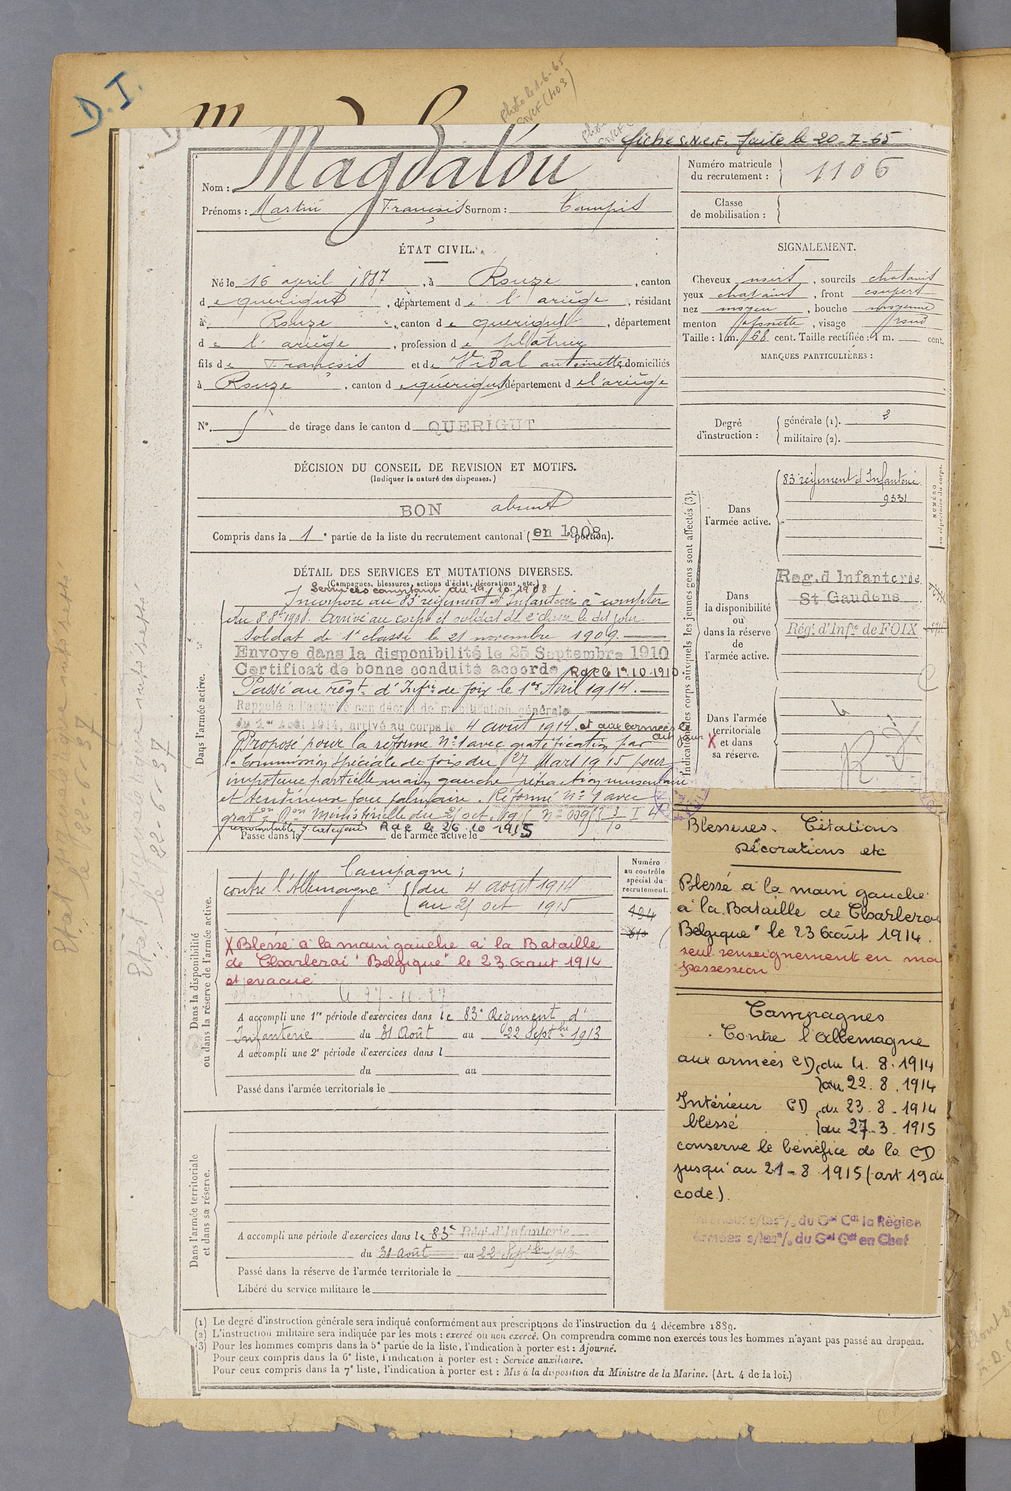 D.I.
fiche S.N.C.F. faite le 20-7-65
Nom : Magdalou
Prénoms : Martin François Surnom :
Numéro matricule du recrutement : 1106
Classe de mobilisation :
ÉTAT CIVIL.
Né le 16 april 1887, à Rouze, canton
de querigut, département de l'ariège, résidant
à Rouze, canton de querigut, département
de l'ariège, profession de platrier
fils de François et de Vidal antoinette domiciliés
à Rouze, canton de querigut département de l'ariège
N° de tirage dans le canton d QUERIGUT
SIGNALEMENT.
Cheveux noirs, sourcils chatains
yeux chatains, front couvert
nez moyen, bouche moyenne
menton fossette, visage rond
Taille : 1 m. 68 cent. Taille rectifiée : 1 m. cent.
MARQUES PARTICULIÈRES :
Degré d'instruction : générale (1). 2
militaire (2).
DÉCISION DU CONSEIL DE REVISION ET MOTIFS.
(Indiquer la nature des dispenses.)
BON absent
Compris dans la 1e partie de la liste du recrutement cantonal (en 1908 portion).
DÉTAIL DES SERVICES ET MUTATIONS DIVERSES.
(Campagnes, blessures, actions d'éclat, décorations, etc.)
Services comptant du 1er.10.1908
Incorporé au 83e régiment d'Infanterie à compter
du 8 8bre 1908. Arrivé au corps et soldat de 2e classe le dit jour.
Soldat de 1e classe le 21 novembre 1909.
Envoyé dans la disponibilité le 25 Septembre 1910
Certificat de bonne conduite accordé Rdc le 1er.10.1910
Passé au régt d'Infie de foix le 1er Avril 1914.
Rappelé à l'activité par décret de mobilisation générale
du 1er Août 1914, arrivé au corps le 4 août 1914 et aux armées le
dit jour
Proposé pour la réforme n°1 avec gratification par
Commission spéciale de foix du 27 Mars 1915 pour
impotence partielle main gauche rétraction musculaire
et tendineuse face palmaire. Réformé n°1 avec
Passé dans la de l'armée active le
Rdc le 26.10.1915
Dans l'armée active.
Indication des corps auxquels les jeunes gens sont affectés (3).
Dans l'armée active.
83e régiment d'Infanterie
9331
NUMÉRO au répertoire du corps.
Dans la disponibilité ou dans la réserve de l'armée active.
Reg. d'Infanterie
St Gaudens
Régt d'Infie de FOIX
Dans l'armée territoriale et dans sa réserve.
X
Campagne :
contre l'Allemagne du 4 août 1914
au 25 oct 1915
Numéro au contrôle spécial du recrutement.
X Blessé à la main gauche à la Bataille
de Charleroi "Belgique" le 23 Août 1914
et évacué
Dans la disponibilité ou dans la réserve de l'armée active.
A accompli une 1re période d'exercices dans le 83e Régiment d'
Infanterie du 31 Août au 22 Septbre 1913
A accompli une 2e période d'exercices dans l
du au
Passé dans l'armée territoriale le
Blessures. Citations
Décorations etc
Blessé à la main gauche
à la Bataille de Charleroi
"Belgique" le 23 Août 1914.
seul renseignement en ma
possession
Campagnes
Contre l'Allemagne
aux armées CD du 4.8.1914
au 22.8.1914
Intérieur CD du 23.8.1914
blessé au 27.3.1915
conserve le bénéfice de la CD
jusqu'au 21-8 1915 (art 19 du
code).
Intérieur s/les % du Gal Cdt la Région
Armées s/les % du Gal Cdt en Chef
Dans l'armée territoriale et dans sa réserve.
A accompli une période d'exercices dans le 83e Régt d'Infanterie
du 31 Août au 22 Septbre 1913
Passé dans la réserve de l'armée territoriale le
Libéré du service militaire le
(1) Le degré d'instruction générale sera indiqué conformément aux prescriptions de l'instruction du 4 décembre 1889.
(2) L'instruction militaire sera indiquée par les mots : exercé ou non exercé. On comprendra comme non exercés tous les hommes n'ayant pas passé au drapeau.
(3) Pour les hommes compris dans la 5e partie de la liste, l'indication à porter est : Ajourné.
Pour ceux compris dans la 6e liste, l'indication à porter est : Service auxiliaire.
Pour ceux compris dans la 7e liste, l'indication à porter est : Mis à la disposition du Ministre de la Marine. (Art. 4 de la loi.)